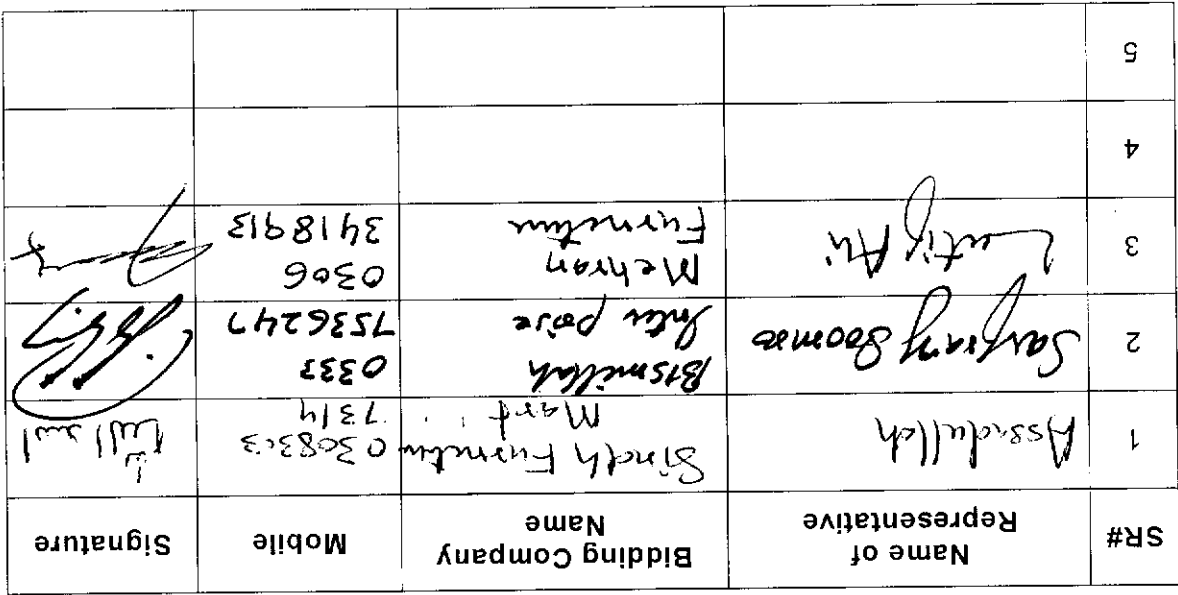 SR#
Name of
Representative
Bidding Company
Name
Mobile
Signature
1
Assadullah
Sindh Furnetur
Mart
0308303
7314
اسد اللہ
2
Soomro
Bismillah
Inter poise
0333
7536247
3
Latif Ali
Mehran
Furnetur
0306
3418913
4
5